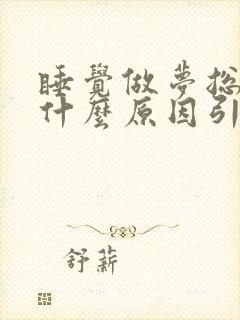 睡覺做夢總
什麼原因引
舒薪